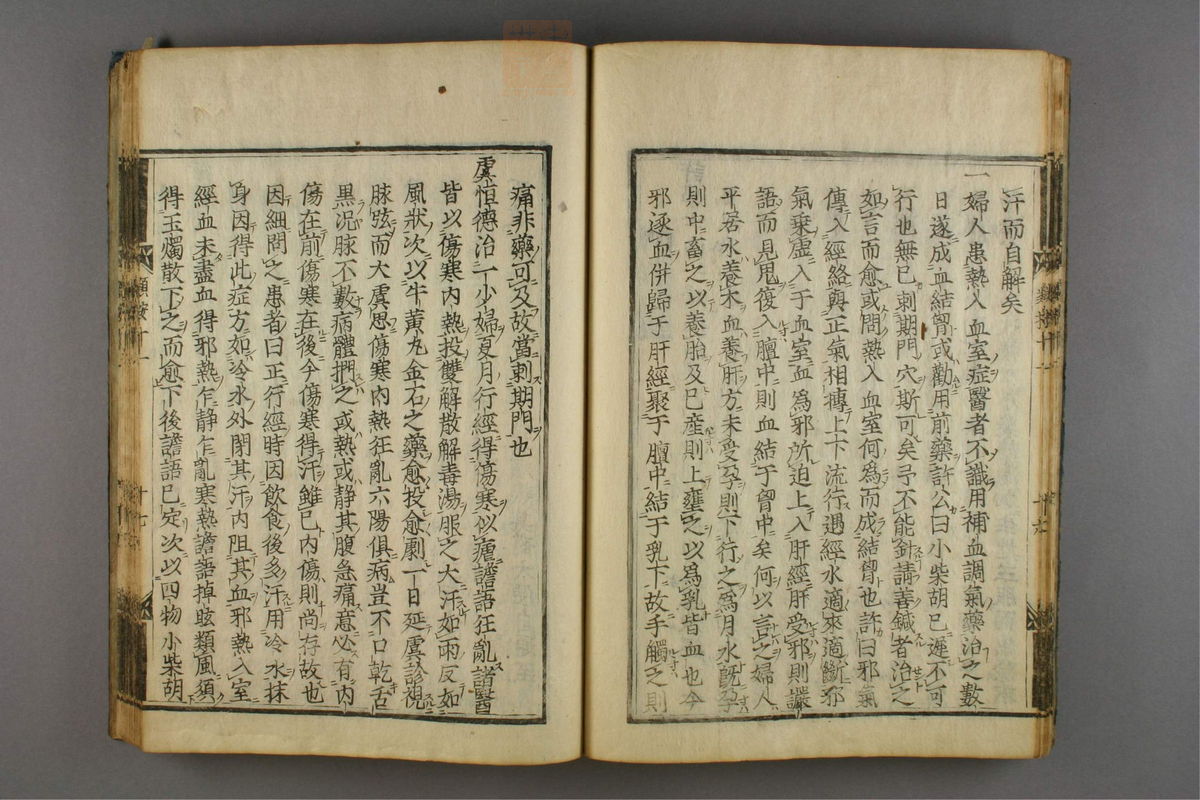 汗而自解矣
一婦人患熱入血室症醫者不識用補血調氣藥治之數
日遂成血結胷或勸用前藥許公曰小柴胡已遲不可
行也無已刺期門穴斯可矣予不能針請善鍼者治之
如言而愈或問熱入血室何為而成結胷也許曰邪氣
傳入經絡與正氣相摶上下流行遇經水適來適斷邪
氣乗虛入于血室血爲邪所迫上入肝經肝受邪則讝
語而見鬼復入膻中則血結于胷中矣何以言之婦人
平居水養木血養肝方未受孕則下行之爲月水旣孕
則中畜之以養胎及已産則上壅之以爲乳皆血也今
邪逐血併歸于肝經聚于膻中結于乳下故手觸之則
痛非藥可及故當刺期門也
虞恒德治一少婦夏月行經得傷寒似瘧譫語狂亂諸醫
皆以傷寒内熱投雙解散解毒湯服之大汗如雨反如
風狀次以牛黃丸金石之藥愈投愈劇一日延虞診視
脉弦而大虞思傷寒内熱狂亂六陽俱病豈不口乾舌
黑况脉不數病體捫之或熱或静其腹急痛意必有内
傷在前傷寒在後今傷寒得汗雖已内傷則尚存故也
因細問之患者曰正行經時因飲食後多汗用冷水抹
身因得此症方知冷水外閉其汗内阻其血邪熱入室
經血未盡血得邪熱乍静乍亂寒熱譫語掉眩類風須
得玉燭散下之而愈下後譫語已定次以四物小柴胡
類按十一
十七